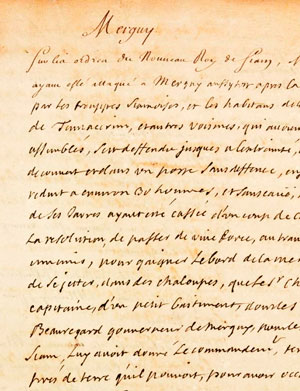 Merguy
Sur les ordres du Nouveau Roy de Siam, M
ayant esté attaqué a Merguy
par les trouppes siamoises, et les habitans de
de Tenacerim, et autres voisines, qui avoien
assemblés, s'est deffendu jusques a l'extremité,
decouvert et dans un poste sans deffence, en
reduit a environ 30 hommes, et
de ses tavres ayant été cassée d'un coup de C
La resolution, de passer de vive force, au trau
ennemis, pour gagner Le bord de la me
de se jetter, dans des chaloupes, que Le Sr. Ch
capitaine, d'un petit bastiment, dont le S
Beauregard gouverneur de merguy, pour le
Siam, Luy avoit donné Le commandemt., ten
prés de terre qu'il pouvoit, pour avoir occ